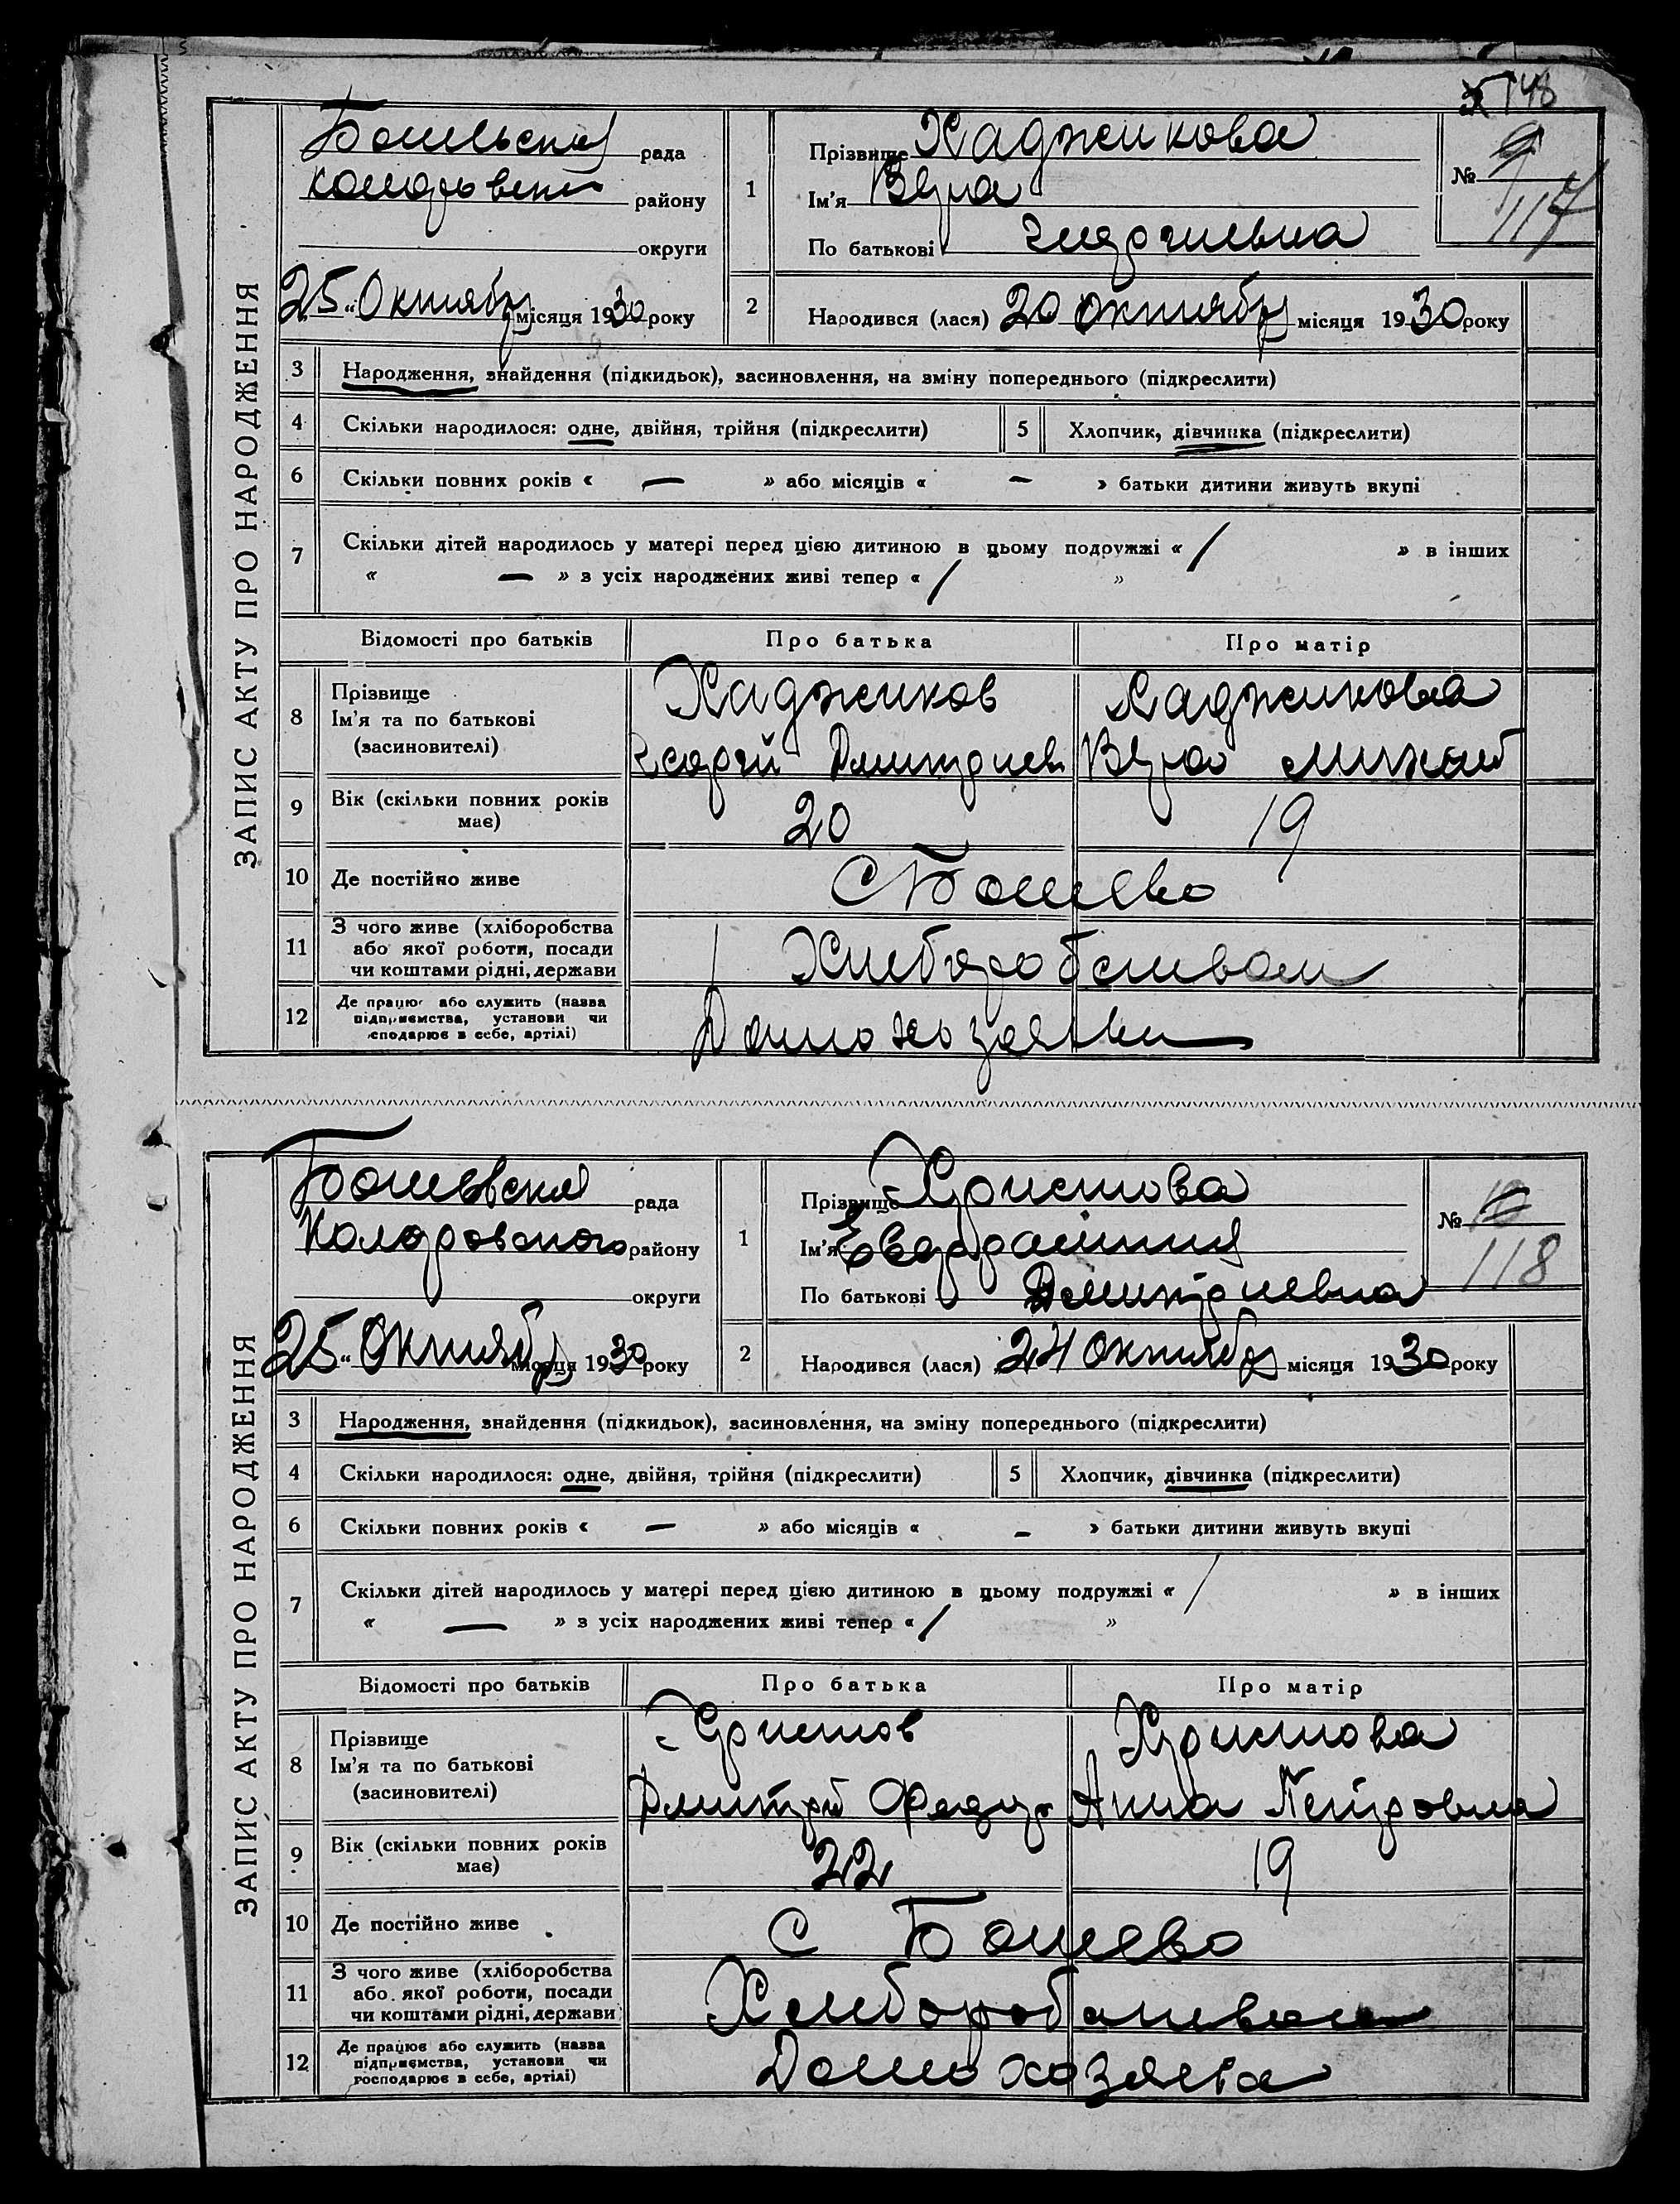 148
ЗАПИС АКТУ ПРО НАРОДЖЕННЯ
рада
району
округи
25 "Октябр місяця 1930 року
1
Прізвище Хаджикова
Ім'я Вера
По батькові Георгиевна
№ 9
117
2
Народився (лася) 20 Октябр місяця 1930 року
3
Народження, знайдення (підкидьок), засиновлення, на зміну попереднього (підкреслити)
4
Скільки народилося: одне, двійня, трійня (підкреслити)
5
Хлопчик, дівчинка (підкреслити)
6
Скільки повних років « — » або місяців « — » батьки дитини живуть вкупі
7
Скільки дітей народилось у матері перед цією дитиною в цьому подружжі « / » в інших
« — » з усіх народжених живі тепер « / »
Відомості про батьків
Про батька
Про матір
8
Прізвище
Ім'я та по батькові
(засиновителі)
Хаджиков
Георгій Дмитриев
Хаджикова
Вера
9
Вік (скільки повних років
має)
20
19
10
Де постійно живе
С Ботево
11
З чого живе (хліборобства
або якої роботи, посади
чи коштами рідні, держави
Хлеборобством
12
Де працює або служить (назва
підприємства, установи чи
господарює в себе, артілі)
Домохозяйн
ЗАПИС АКТУ ПРО НАРОДЖЕННЯ
Ботевская рада
Коларовского району
округи
25 "Октябр місяця 1930 року
1
Прізвище Христова
Ім'я
По батькові Дмитриевна
№ 10
118
2
Народився (лася) 24 Октябр місяця 1930 року
3
Народження, знайдення (підкидьок), засиновлення, на зміну попереднього (підкреслити)
4
Скільки народилося: одне, двійня, трійня (підкреслити)
5
Хлопчик, дівчинка (підкреслити)
6
Скільки повних років « — » або місяців « — » батьки дитини живуть вкупі
7
Скільки дітей народилось у матері перед цією дитиною в цьому подружжі « / » в інших
« — » з усіх народжених живі тепер « / »
Відомості про батьків
Про батька
Про матір
8
Прізвище
Ім'я та по батькові
(засиновителі)
Христов
Дмитрий Федор
Христова
Анна Петровна
9
Вік (скільки повних років
має)
22
19
10
Де постійно живе
С Ботево
11
З чого живе (хліборобства
або якої роботи, посади
чи коштами рідні, держави
Хлеборобством
12
Де працює або служить (назва
підприємства, установи чи
господарює в себе, артілі)
Домохозяева